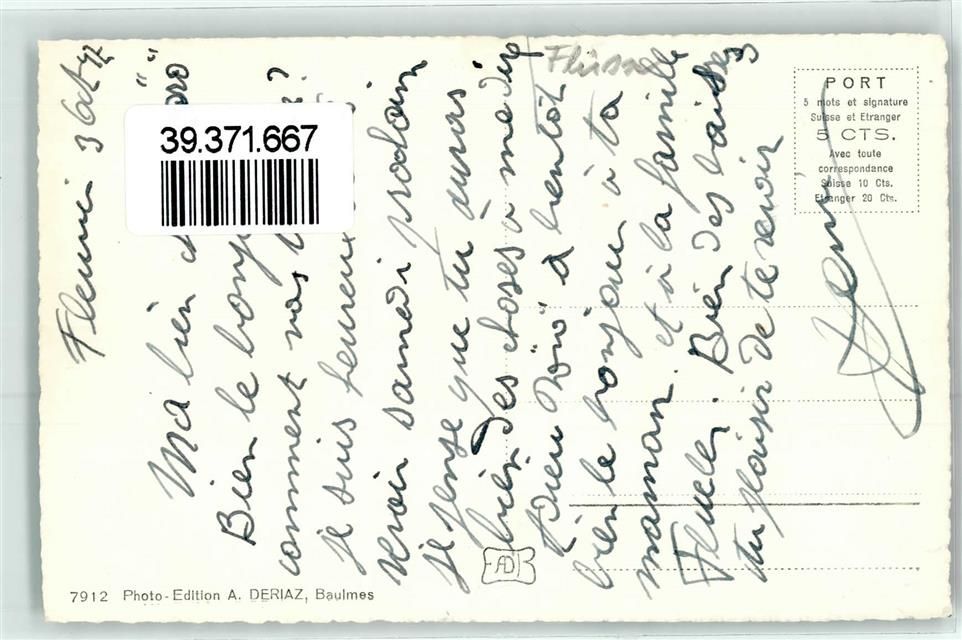 3
Ma bien
Bien le bonj
comment vas ?
je suis heureu
revoir samedi prochain
je pense que tu auras
bien des choses a me dire
Adieu à bientôt
bien le bonjour à ta
maman. et à la famille
Bien des baisers
du plaisir de te revoir
39.371.667
PORT
5 mots et signature
Suisse et Etranger
5 CTS.
Avec toute
correspondance
Suisse 10 Cts.
Etranger 20 Cts.
7912 Photo-Edition A. DERIAZ, Baulmes